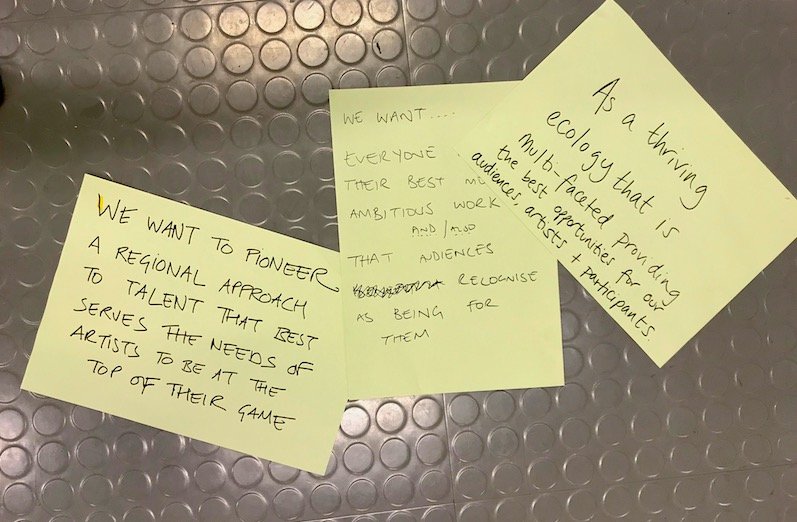 WE WANT TO PIONEER
A REGIONAL APPROACH
TO TALENT THAT BEST
SERVES THE NEEDS OF
ARTISTS TO BE AT THE
TOP OF THEIR GAME
WE WANT....
EVERYONE
THEIR BEST
AMBITIOUS WORK
AND/ALSO
THAT AUDIENCES
RECOGNISE
AS BEING FOR
THEM
As a thriving
ecology that is
multi-faceted providing
the best opportunities for our
audiences, artists + participants.